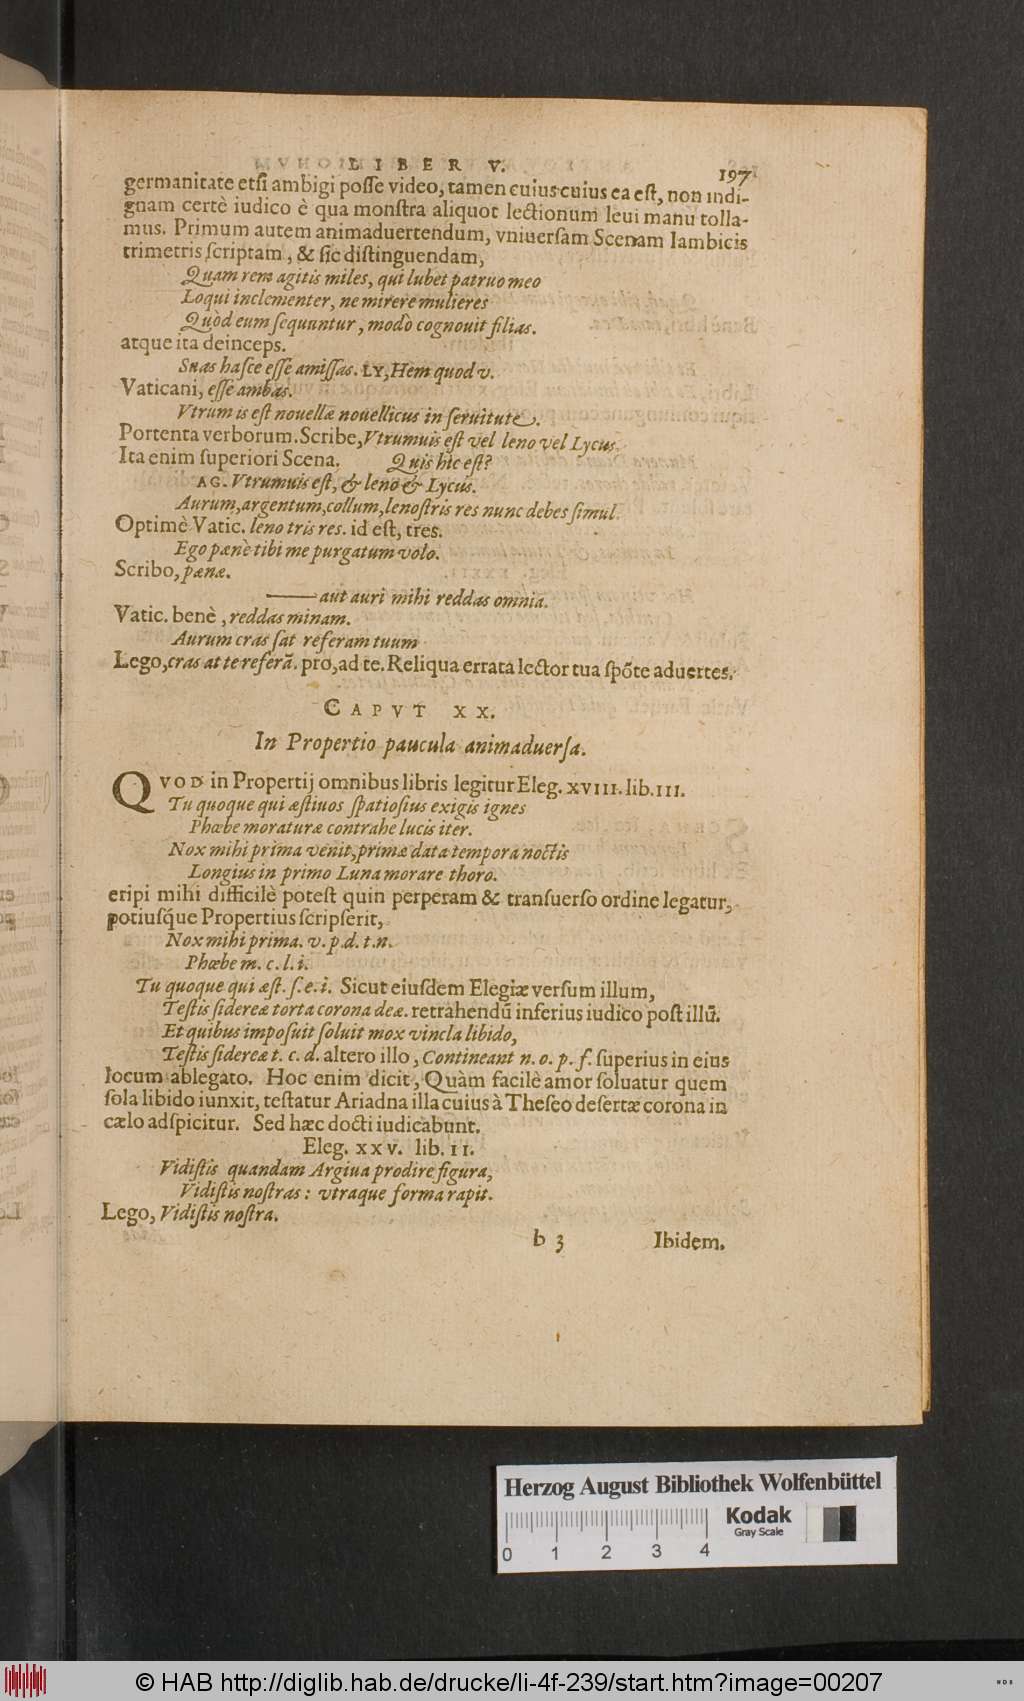 LIBER V. 197
germanitate etsi ambigi posse video, tamen cuius cuius ea est, non indi-
gnam certè iudico è qua monstra aliquot lectionum leui manu tolla-
mus. Primum autem animaduertendum, vniuersam Scenam Iambicis
trimetris scriptam, & sic distinguendam,
Quam rem agitis miles, qui lubet patruo meo
Loqui inclementer, ne mirere mulieres
Quòd eum sequuntur, modò cognouit filias.
atque ita deinceps.
Suas hasce esse amissas. LY, Hem quod v.
Vaticani, esse ambas.
Vtrum is est nouellæ nouellicus in seruitute.
Portenta verborum. Scribe, Vtrumuis est vel leno vel Lycus.
Ita enim superiori Scena. Quis hic est?
AG. Vtrumuis est, & leno & Lycus.
Aurum, argentum, collum, lenostris res nunc debes simul.
Optimè Vatic. leno tris res. id est, tres.
Ego pænè tibi me purgatum volo.
Scribo, pænæ.
—— aut auri mihi reddas omnia.
Vatic. benè, reddas minam.
Aurum cras sat referam tuum
Lego, cras at te referã. pro, ad te. Reliqua errata lector tua spõte aduertes.
CAPVT XX.
In Propertio paucula animaduersa.
QVOD in Propertij omnibus libris legitur Eleg. XVIII. lib. III.
Tu quoque qui æstiuos spatiosius exigis ignes
Phœbe moraturæ contrahe lucis iter.
Nox mihi prima venit, primæ data tempora noctis
Longius in primo Luna morare thoro.
eripi mihi difficilè potest quin perperam & transuerso ordine legatur,
potiusq́ue Propertius scripserit,
Nox mihi prima. v. p. d. t. n.
Phœbe m. c. l. i.
Tu quoque qui æst. s. e. i. Sicut eiusdem Elegiæ versum illum,
Testis sidereæ torta corona deæ. retrahendũ inferius iudico post illũ.
Et quibus imposuit soluit mox vincla libido,
Testis sidereæ t. c. d. altero illo, Contineant n. o. p. f. superius in eius
locum ablegato. Hoc enim dicit, Quàm facilè amor soluatur quem
sola libido iunxit, testatur Ariadna illa cuius à Theseo desertæ corona in
cælo adspicitur. Sed hæc docti iudicabunt.
Eleg. XXV. lib. II.
Vidistis quandam Argiua prodire figura,
Vidistis nostras: vtraque forma rapit.
Lego, Vidistis nostra.
b 3 Ibidem.
Herzog August Bibliothek Wolfenbüttel
Kodak
Gray Scale
0 1 2 3 4
© HAB http://diglib.hab.de/drucke/li-4f-239/start.htm?image=00207